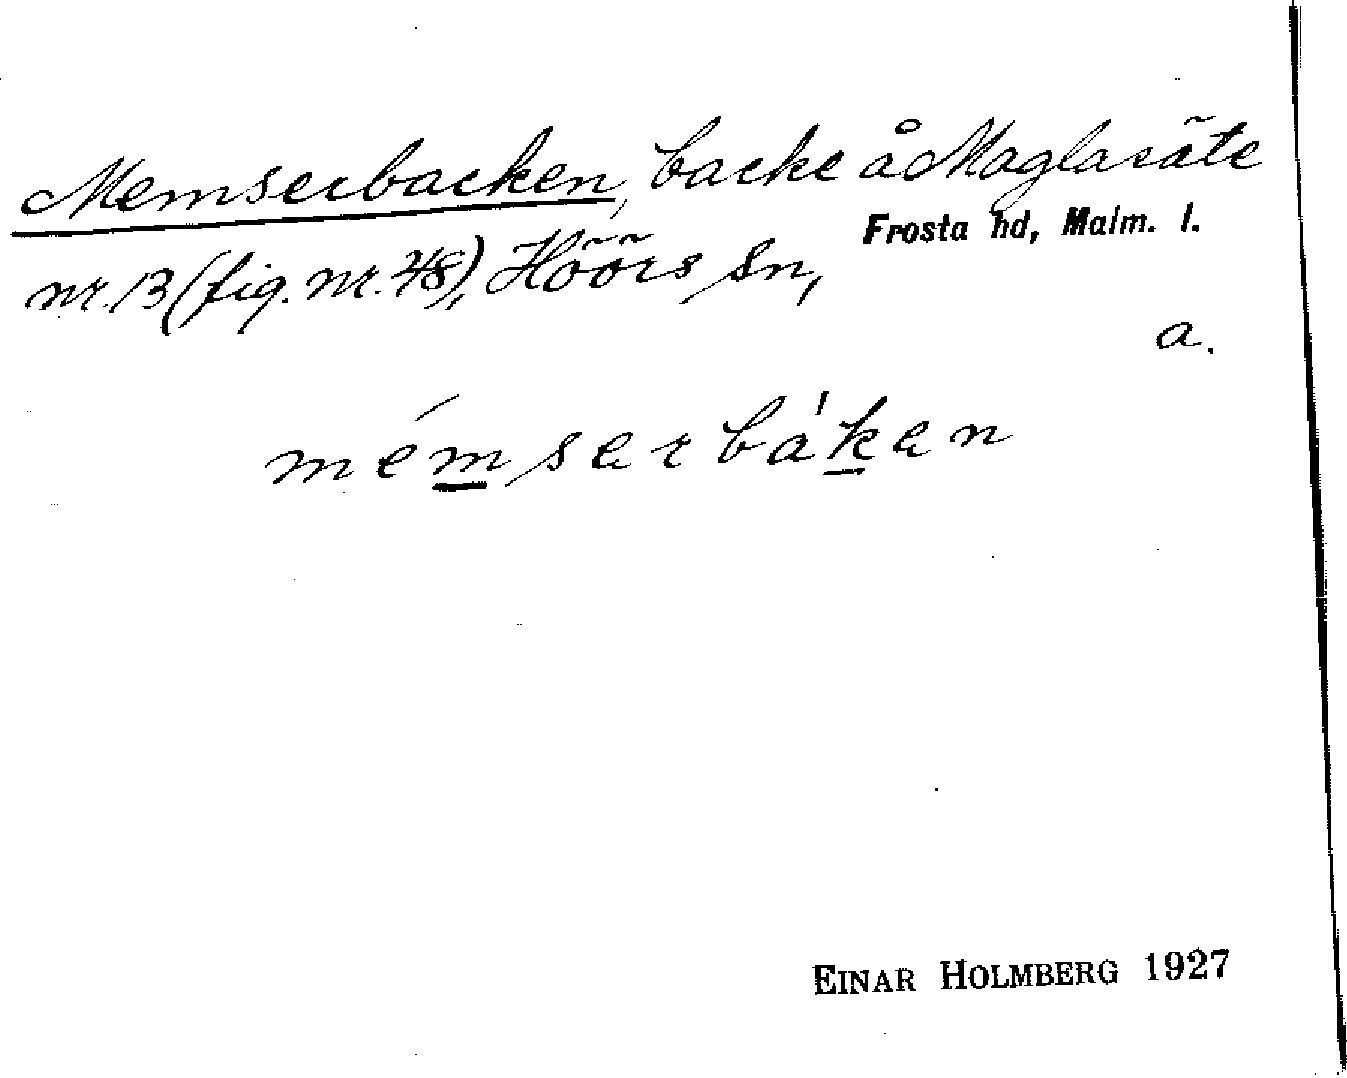 Memserbacken, backe å Maglasäte
nr. 13 (fig. nr. 48), Höörs sn, Frosta hd, Malm. l.
a.
mémserbáken
EINAR HOLMBERG 1927